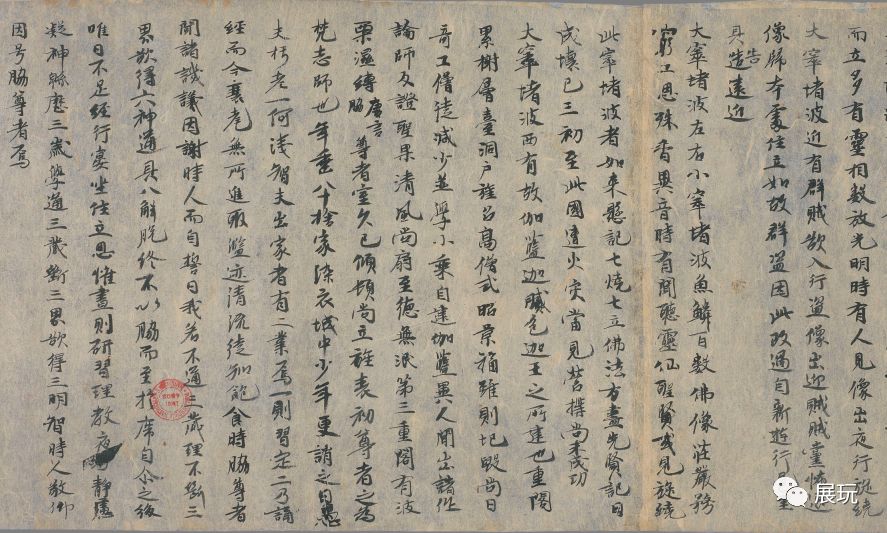 而立多有靈相數放光明時有人見像出夜行旋繞
大窣堵波近有群賊欲入行盜像出迎賊賊黨怖退
像歸本處住立如故群盜因此改過自新遊行邑里
具告遠近
大窣堵波左右小窣堵波魚鱗百數佛像莊嚴務
窮工思殊香異音時有聞聽靈仙聖賢或見旋繞
此窣堵波者如來懸記七燒七立佛法方盡先賢記曰
成壞已三初至此國遭火災當見營搆尚未成功
大窣堵波西有故伽藍迦膩色迦王之所建也重閣
累榭層臺洞戶旌召高僧式昭景福雖則圮毀尚曰
奇工僧徒減少並學小乘自建伽藍異人間出諸作
論師及證聖果清風尚扇至德無泯第三重閣有波
栗濕縛唐言脇尊者室久已傾頓尚立旌表初尊者之為
梵志師也年垂八十捨家染衣城中少年更誚之曰愚
夫朽老一何淺智夫出家者有二業焉一則習定二乃誦
經而今衰耄無所進取濫迹清流徒知飽食時脇尊者
聞諸譏議因謝時人而自誓曰我若不通三藏理不斷三
界欲得六神通具八解脫終不以脇而至於席自尒之後
唯日不足經行宴坐住立思惟晝則研習理教夜靜慮
凝神綿歷三歲學通三藏斷三界欲得三明智時人敬仰
因号脇尊者焉
展玩